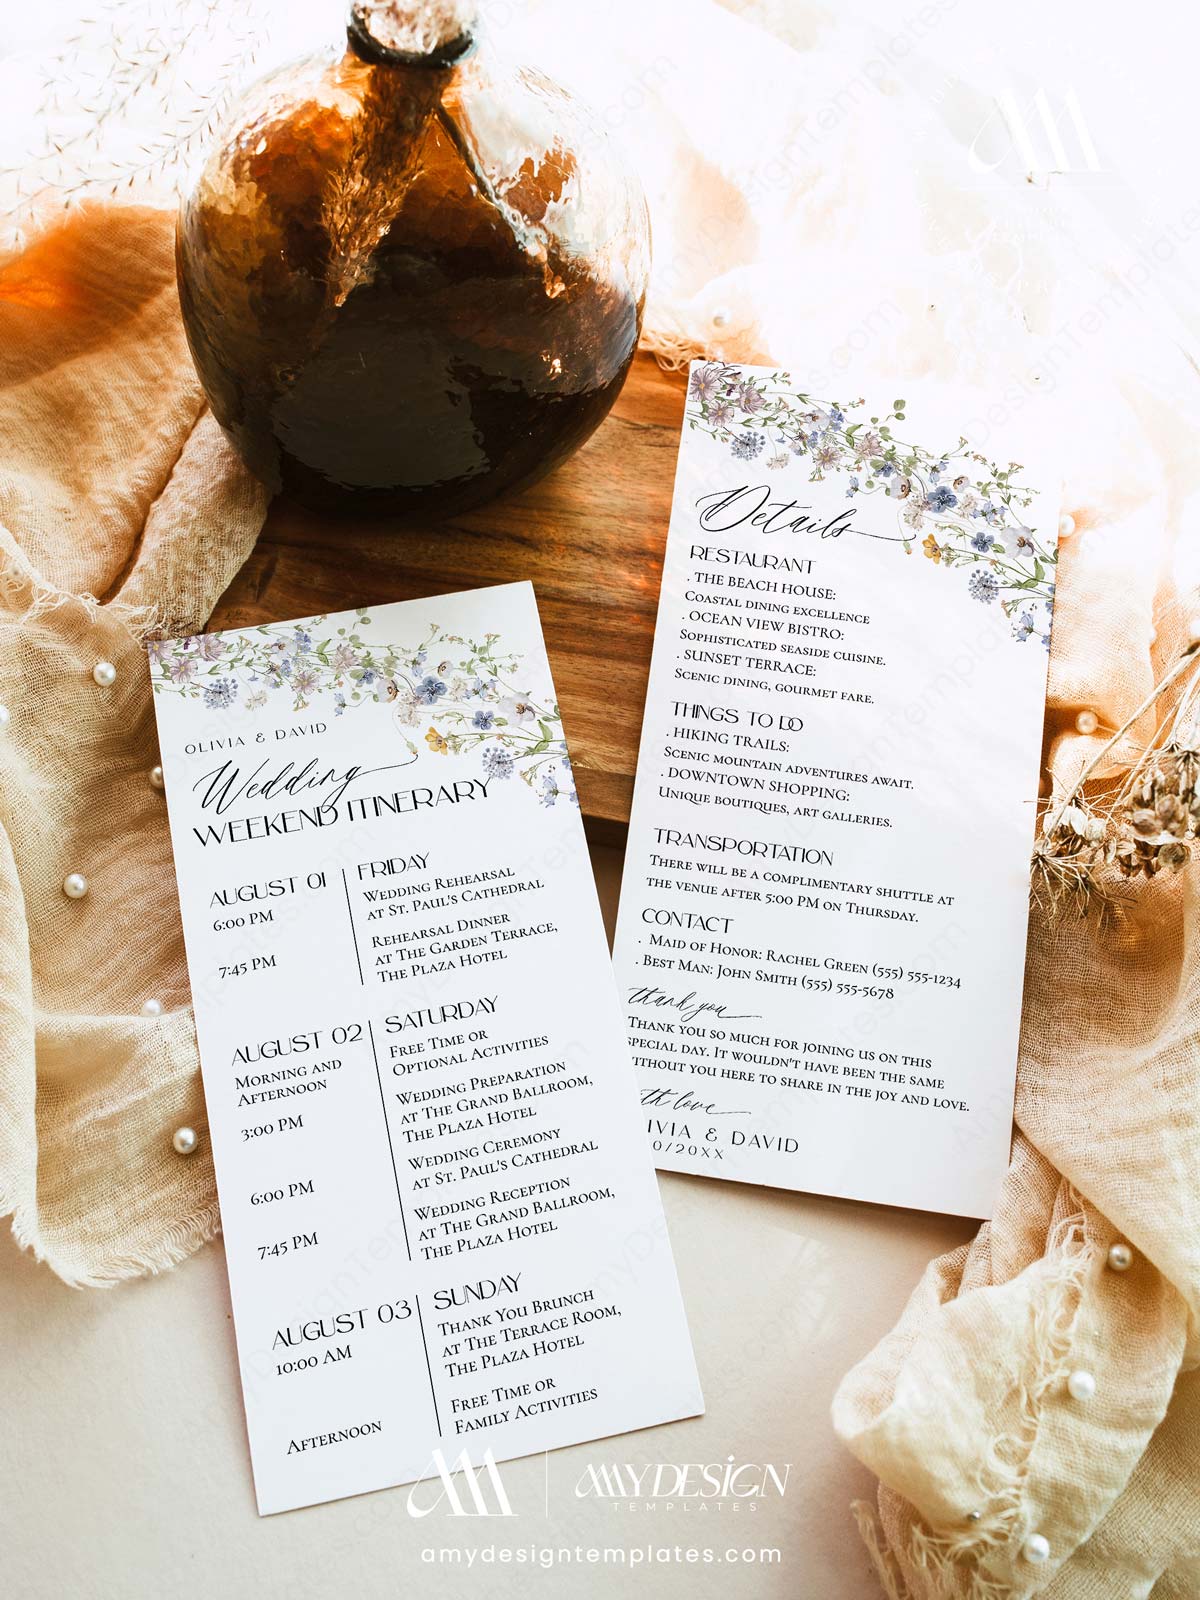 OLIVIA & DAVID
Wedding
WEEKEND ITINERARY
AUGUST 01
FRIDAY
6:00 PM
WEDDING REHEARSAL
AT ST. PAUL'S CATHEDRAL
7:45 PM
REHEARSAL DINNER
AT THE GARDEN TERRACE,
THE PLAZA HOTEL
AUGUST 02
SATURDAY
MORNING AND
AFTERNOON
FREE TIME OR
OPTIONAL ACTIVITIES
3:00 PM
WEDDING PREPARATION
AT THE GRAND BALLROOM,
THE PLAZA HOTEL
6:00 PM
WEDDING CEREMONY
AT ST. PAUL'S CATHEDRAL
7:45 PM
WEDDING RECEPTION
AT THE GRAND BALLROOM,
THE PLAZA HOTEL
AUGUST 03
SUNDAY
10:00 AM
THANK YOU BRUNCH
AT THE TERRACE ROOM,
THE PLAZA HOTEL
AFTERNOON
FREE TIME OR
FAMILY ACTIVITIES
Details
RESTAURANT
. THE BEACH HOUSE:
COASTAL DINING EXCELLENCE
. OCEAN VIEW BISTRO:
SOPHISTICATED SEASIDE CUISINE.
. SUNSET TERRACE:
SCENIC DINING, GOURMET FARE.
THINGS TO DO
. HIKING TRAILS:
SCENIC MOUNTAIN ADVENTURES AWAIT.
. DOWNTOWN SHOPPING:
UNIQUE BOUTIQUES, ART GALLERIES.
TRANSPORTATION
THERE WILL BE A COMPLIMENTARY SHUTTLE AT
THE VENUE AFTER 5:00 PM ON THURSDAY.
CONTACT
. MAID OF HONOR: RACHEL GREEN (555) 555-1234
. BEST MAN: JOHN SMITH (555) 555-5678
thank you
THANK YOU SO MUCH FOR JOINING US ON THIS
SPECIAL DAY. IT WOULDN'T HAVE BEEN THE SAME
WITHOUT YOU HERE TO SHARE IN THE JOY AND LOVE.
love
& DAVID
0/20XX
AMY DESIGN
TEMPLATES
amydesigntemplates.com